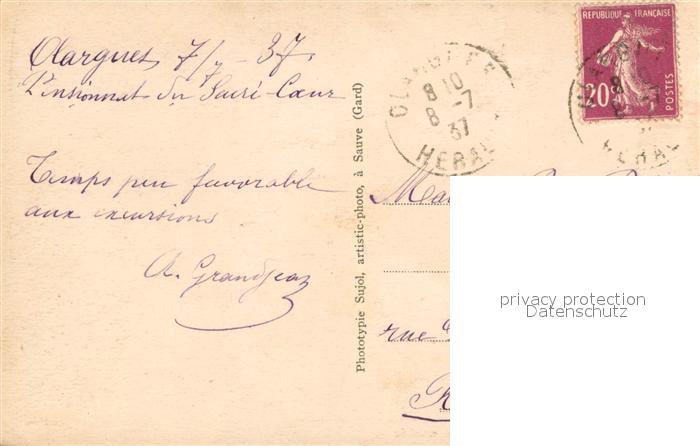 Olargues 7/7 - 37
Pensionnat du Sacré-Cœur
Temps peu favorable
aux excursions
A. Grandjean
Phototypie Sujol, artistic-photo, à Sauve (Gard)
REPUBLIQUE FRANÇAISE
20c
POSTES
OLARGUES
8 10
8 -7
37
HERAU
HERAU
Ma
rue
R
privacy protection
Datenschutz